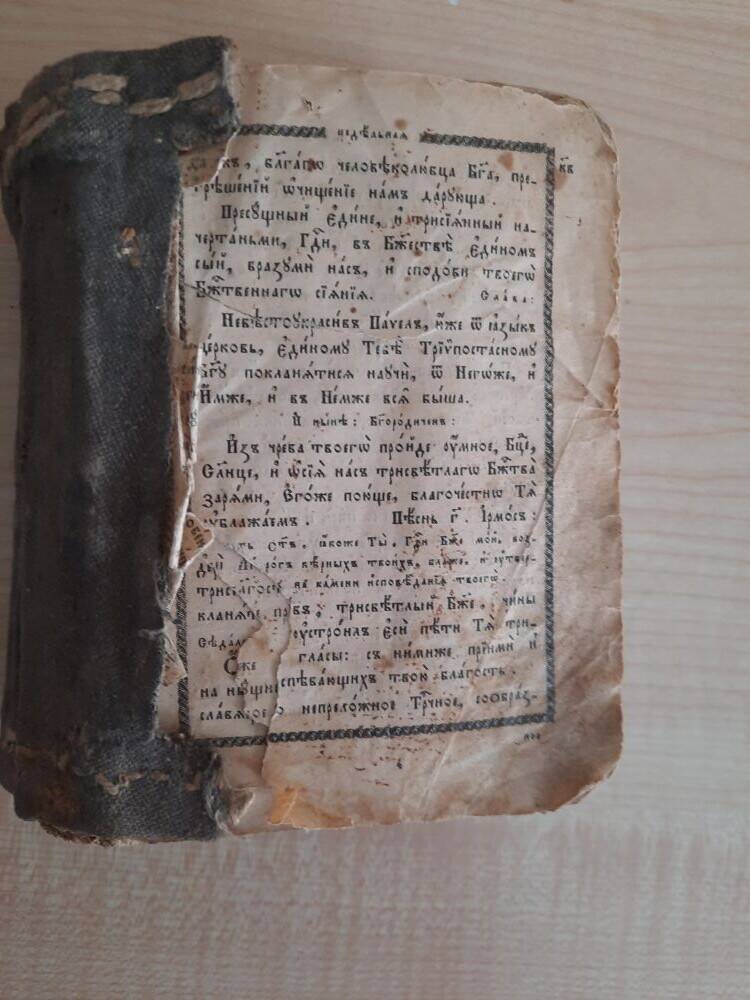 недѣльная
бл҃га́гѡ человѣколю́бца Бг҃а, пре-
грѣше́нїй ѡ҆чище́нїе на́мъ да́рꙋюща.
Пресꙋ́щный є҆ди́не, и҆ трисїѧ́нный на-
черта́ньми, Гдⷭ҇и, въ Бж҃ествѣ̀ є҆ди́номъ
сы́й, вразꙋмѝ на́съ, и҆ сподо́би твоегѡ̀
Бжⷭ҇твеннагѡ сїѧ́нїѧ. Сла́ва:
Невѣстоукраси́въ Па́ѵелъ, и҆́же ѿ ꙗ҆зы̑къ
це́рковь, є҆ди́номꙋ Тебѣ̀ Трїѵпоста́сномꙋ
Бг҃ꙋ покланѧ́тисѧ наꙋчѝ, ѿ Негѡ́же, и҆
И҆́мже, и҆ въ Не́мже всѧ̑ бы́ша.
И҆ ны́нѣ: Бг҃оро́диченъ:
И҆з̾ чре́ва твоегѡ̀ про́йде ᲂу҆́мное, Бцⷣе,
Сл҃нце, и҆ ѡ҆сїѧ̀ на́съ трисвѣ́тлагѡ Бжⷭ҇тва̀
зарѧ́ми, є҆го́же пою́ще, благоче́стнѡ Тѧ̀
ᲂу҆блажа́емъ. Пѣ́снь г҃. І҆рмо́съ:
ст҃ъ, ꙗ҆́коже Ты̀, Гдⷭ҇и Бж҃е мо́й, воз-
ро́гъ вѣ́рныхъ твои́хъ, бл҃же, и҆ ᲂу҆твер-
на ка́мени и҆сповѣ́данїѧ твоегѡ̀.
трисвѣ́тлый Бж҃е, чи́ны
ᲂу҆стро́илъ є҆сѝ пѣ́ти Тѧ̀ три-
гла́сы: съ ни́миже прїимѝ и҆
на́съ воспѣва́ющихъ твою̀ бла́гость.
непрело́жное Трⷪ҇чное, соѡбра́з-